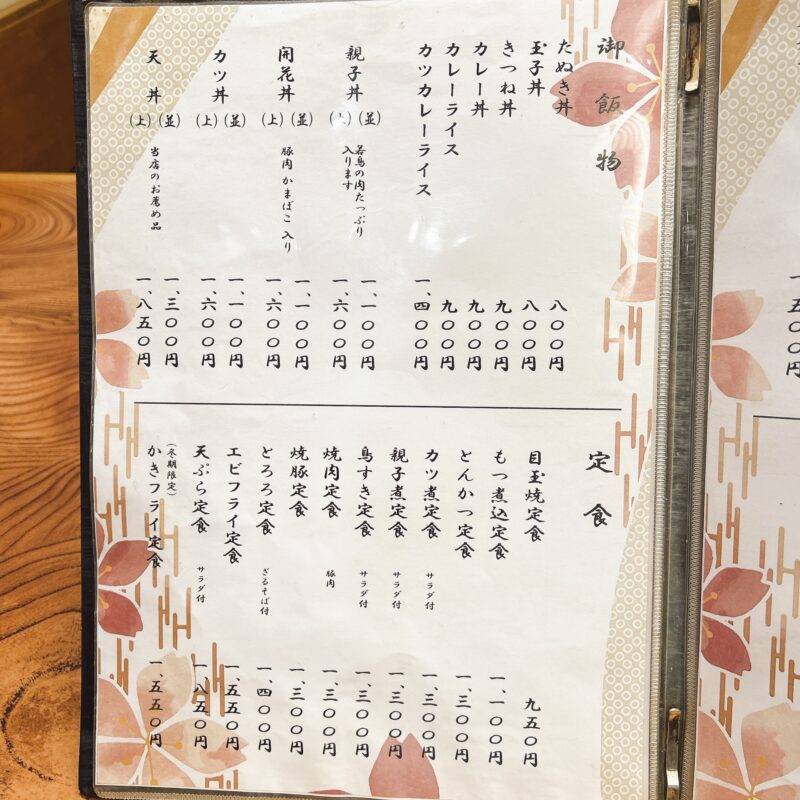 御飯物
たぬき丼 八〇〇円
玉子丼 八〇〇円
きつね丼 九〇〇円
カレー丼 九〇〇円
カレーライス 九〇〇円
カツカレーライス 一、四〇〇円
親子丼
(並) 若鳥の肉たっぷり 一、一〇〇円
(上) 入ります 一、六〇〇円
開花丼
(並) 豚肉 かまぼこ 入り 一、一〇〇円
(上) 一、六〇〇円
カツ丼
(並) 一、一〇〇円
(上) 一、六〇〇円
天丼
(並) 当店のお薦め品 一、三〇〇円
(上) 一、八五〇円
定食
目玉焼定食 九五〇円
もつ煮込定食 一、一〇〇円
とんかつ定食 一、三〇〇円
カツ煮定食 サラダ付 一、三〇〇円
親子煮定食 サラダ付 一、三〇〇円
鳥すき定食 サラダ付 一、三〇〇円
焼肉定食 豚肉 一、三〇〇円
焼豚定食 一、三〇〇円
とろろ定食 ざるそば付 一、四〇〇円
エビフライ定食 一、五五〇円
天ぷら定食 サラダ付 一、八五〇円
(冬期限定)
かきフライ定食 一、五五〇円